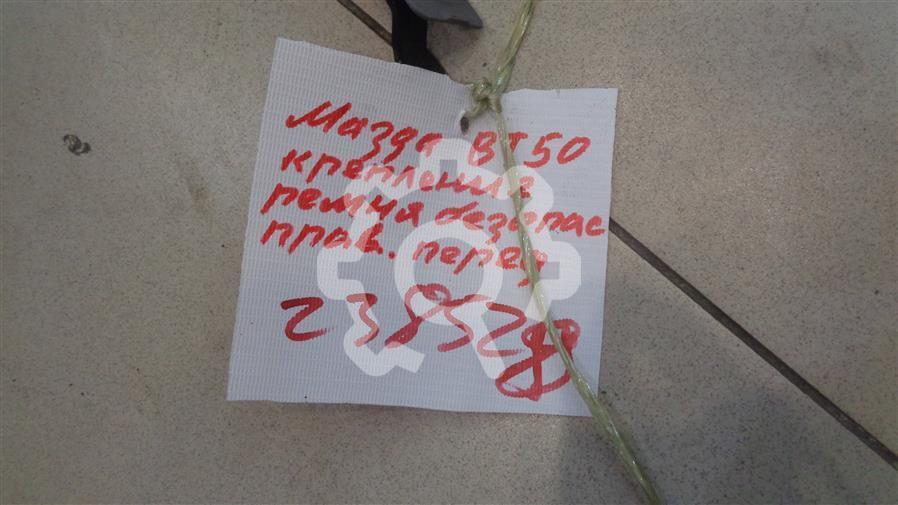 Мазда BT50
крепление
ремня безопас
прав. перед
238528